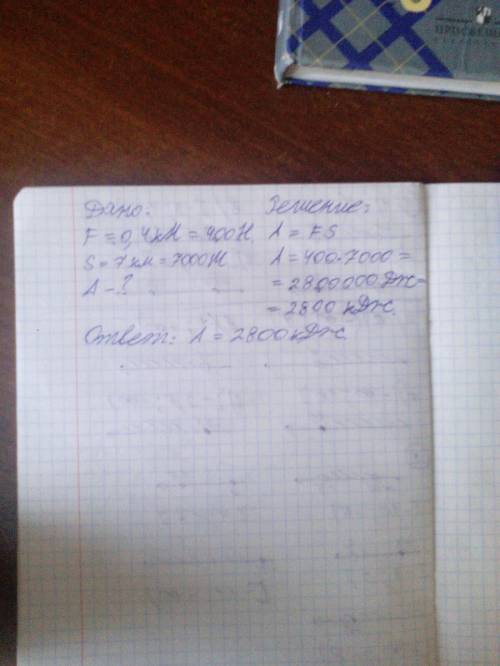 ПРОСВЕЩЕ
Дано:
F = 0,4кН = 400Н
S = 7км = 7000М
A - ?
Решение:
A = FS
A = 400·7000 =
= 2800000 Дж=
= 2800 кДж.
Ответ: A = 2800кДж